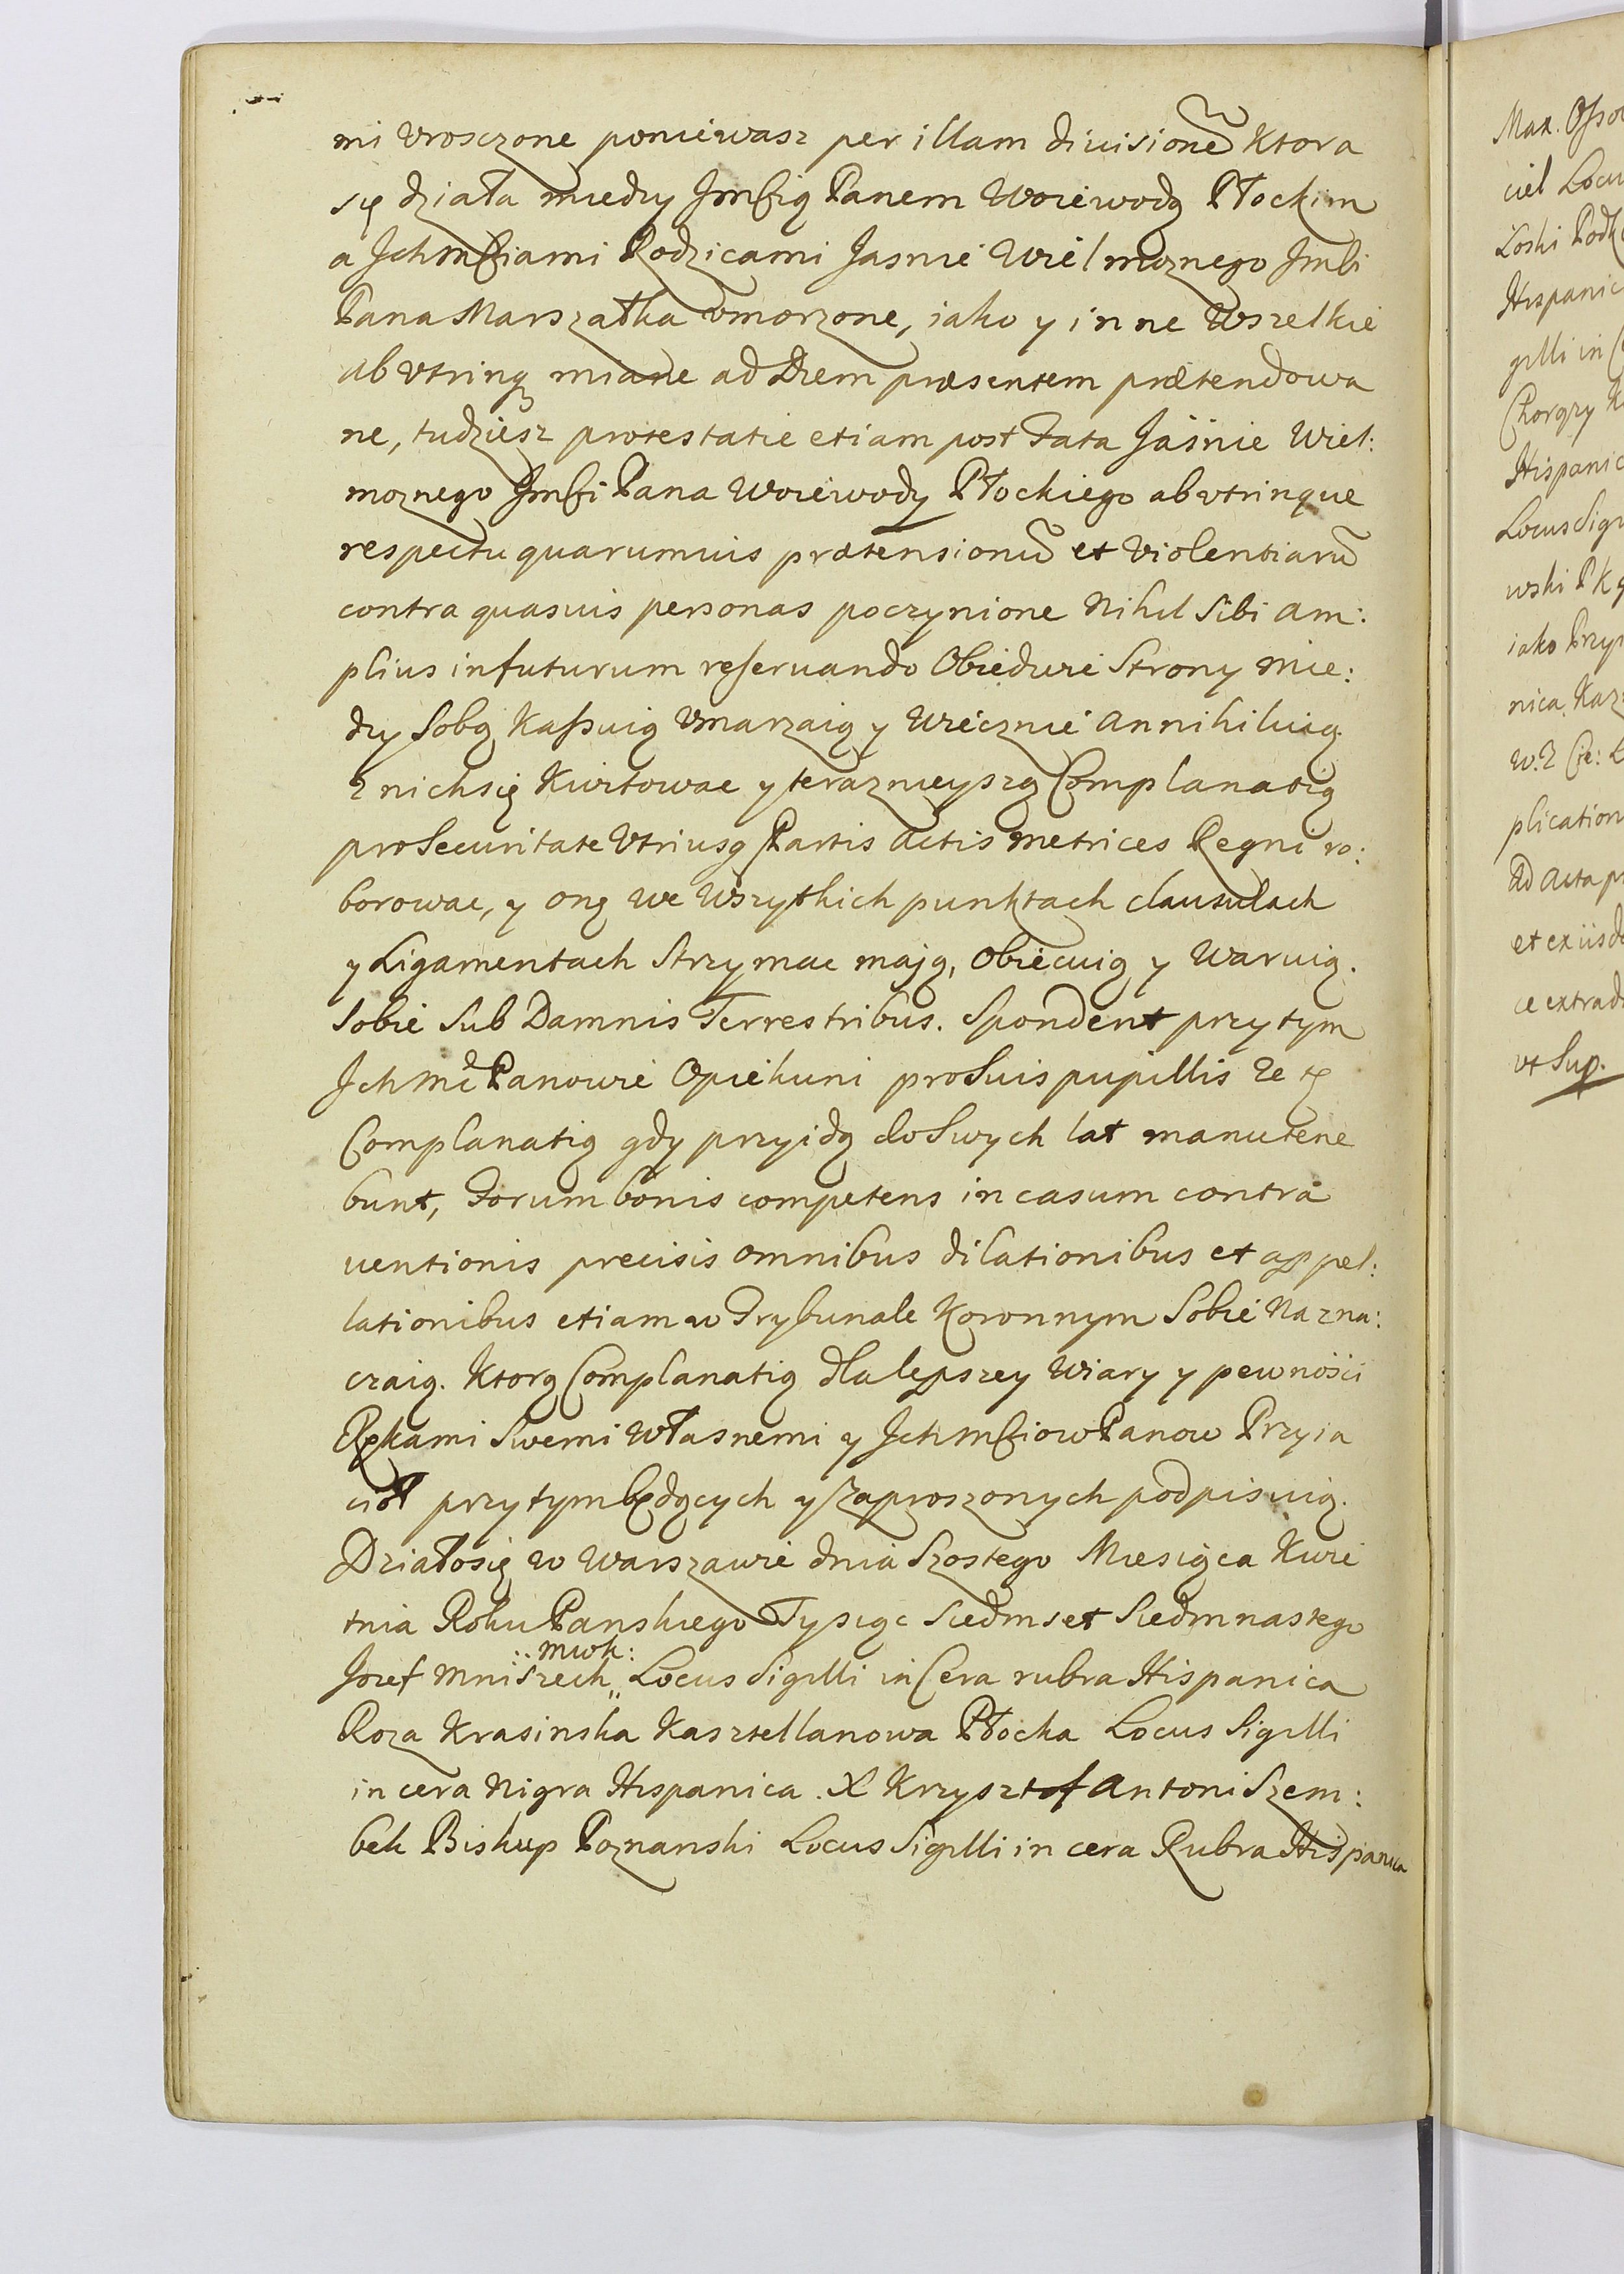 mi vrosczone poniewasz per illam diuisionẽ ktora
się działa miedzy Jmścią Panem Woiewodą Płockim
a Jchmściami Rodzicami Jasnie Wielmoznego Jmści
Pana Marszałka vmorzone, iako y inne Wszelkie
ab vtrinq miane ad Diem præsentem prætendowa
ne, tudziesz protestatie etiam post Fata Jaśnie Wiel:
moznego Jmści Pana Woiewody Płockiego ab vtrinque
respectu quarumuis prætensionũ et Violentiarũ
contra quasuis personas poczynione Nihil Sibi am:
plius infuturum reseruando Obiedwie Strony mie:
dzy Sobą Kassuią Vmarzaią y Wiecznie Annihiluią.
Z nich się Kwitowac y terazniejszą Complanatią
pro Securitate Vtriusq Partis Actis Metrices Regni ro:
borowac, y oną we Wszytkich punktach clausulach
y Ligamentach Strzymac mają, Obiecuią y Waruią.
Sobie Sub Damnis Terrestribus. Spondent przytym
Jchmć Panowie Opiekuni pro Suis pupillis Ze tę
Complanatią gdy przyidą do Swych lat manutene
bunt, Forum bonis competens in casum contra
uentionis precisis omnibus dilationibus et appel:
lationibus etiam w Trybunale Koronnym Sobie Nazna:
czaią. Ktorą Complanatią dla lepszey Wiary y pewności
Rękami Swemi Własnemi y Jchmściow Panow Przyia
ciół przytym będących y Zaproszonych podpisuią.
Działo się w Warszawie dnia Szostego Miesiąca Kwie
tnia Roku Panskiego Tysiąc Siedmset Siedmnastego
mwk:
Jozef Mniszech Locus Sigilli in Cera rubra Hispanica
Roza Krasinska Kasztellanowa Płocka Locus Sigilli
in cera Nigra Hispanica. X Krzysztof Antoni Szem:
bek Biskup Poznanski Locus Sigilli in cera Rubra Hispanica
Max.
ciel
Hispanic
gilli in
Chorązy
Hispanic
Locus
wski
iako
nica
plication
Ad Acta
vt Sup.